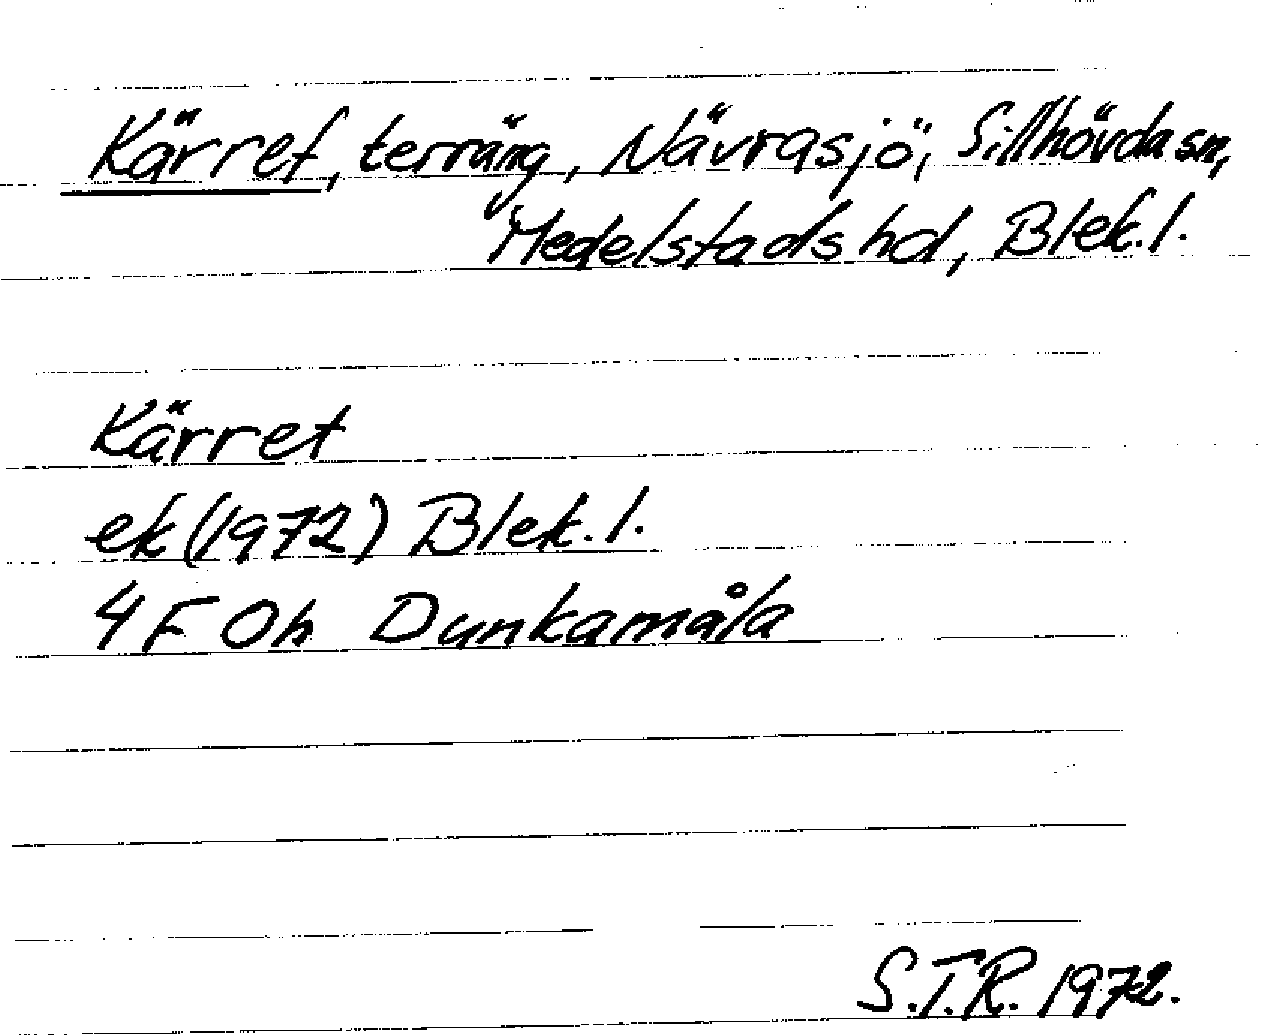 Kärret, terräng, Nävrasjö, Sillhövda sn,
Medelstads hd, Blek. l.
Kärret
ek (1972) Blek. l.
4 F Oh Dunkamåla
S.T.R. 1972.